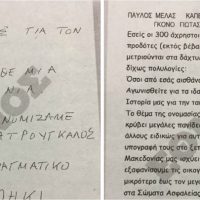 ΓΙΑ ΤΟΝ
ΜΙΑ
ΝΙΑ
ΝΟΜΙΖΑΜΕ
ΑΤΡΟΥΓΚΑΛΟΣ
ΑΓΜΑΤΙΚΟ
ΗΚΙ
ΠΑΥΛΟΣ ΜΕΛΑΣ ΚΑΠΕ
ΓΚΟΝΟ ΓΙΩΤΑΣ
Εσείς οι 300 άχρηστοι
προδότες (εκτός βέβα
μετριούνται στα δάχτυ
δίχως πολυλογίες:
Όσοι από εσάς αισθάν
Αγωνισθείτε για τα ιδα
Ιστορία μας για την τα
Το θέμα της ονομασίας
κρύβει μεγάλες παγίδε
άλλους ειδικούς για αυτ
υπογραφή τους στο ξεπ
Μακεδονίας μας ισχύει
εξαφανίσουμε τις οικογ
μικρότερο έως τον μεγα
στα Σώματα Ασφαλείας